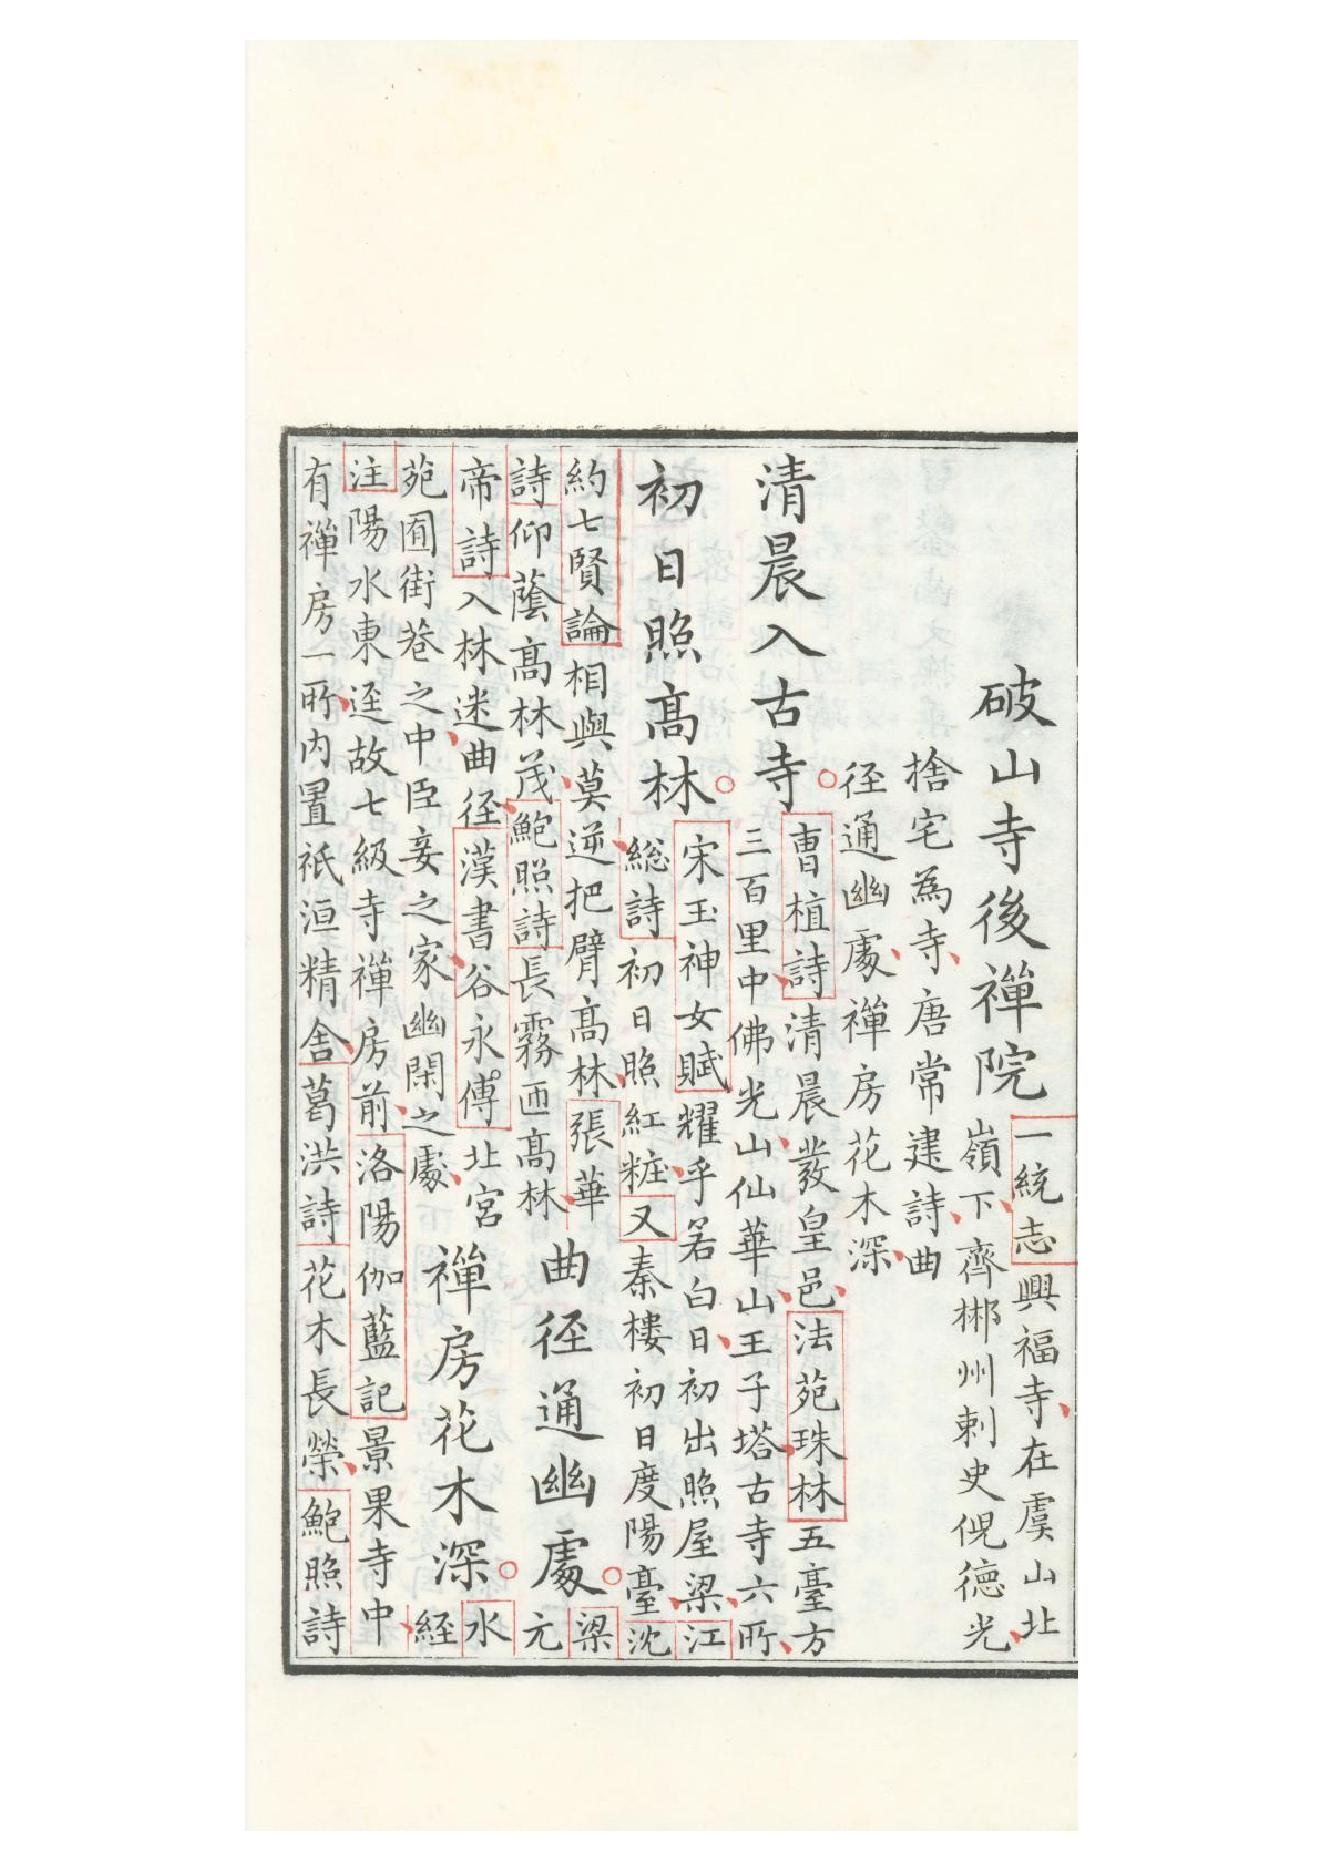 破山寺後禪院
一統志興福寺在虞山北
嶺下齊郴州刺史倪德光
捨宅為寺唐常建詩曲
径通幽處禪房花木深
清晨入古寺
曹植詩清晨發皇邑法苑珠林五臺方
三百里中佛光山仙華山王子塔古寺六所
初日照高林
宋玉神女賦耀乎若白日初出照屋梁江
総詩初日照紅粧又秦樓初日度陽臺沈
約七賢論相與莫逆把臂高林張華
詩仰蔭高林茂鮑照詩長霧匝高林
曲径通幽處
梁
元
帝詩入林迷曲径漢書谷永傳北宮
苑囿街巷之中臣妾之家幽閑之處
禪房花木深
水
経
注陽水東迳故七級寺禪房前洛陽伽藍記景果寺中
有禪房一所內置祇洹精舍葛洪詩花木長榮鮑照詩